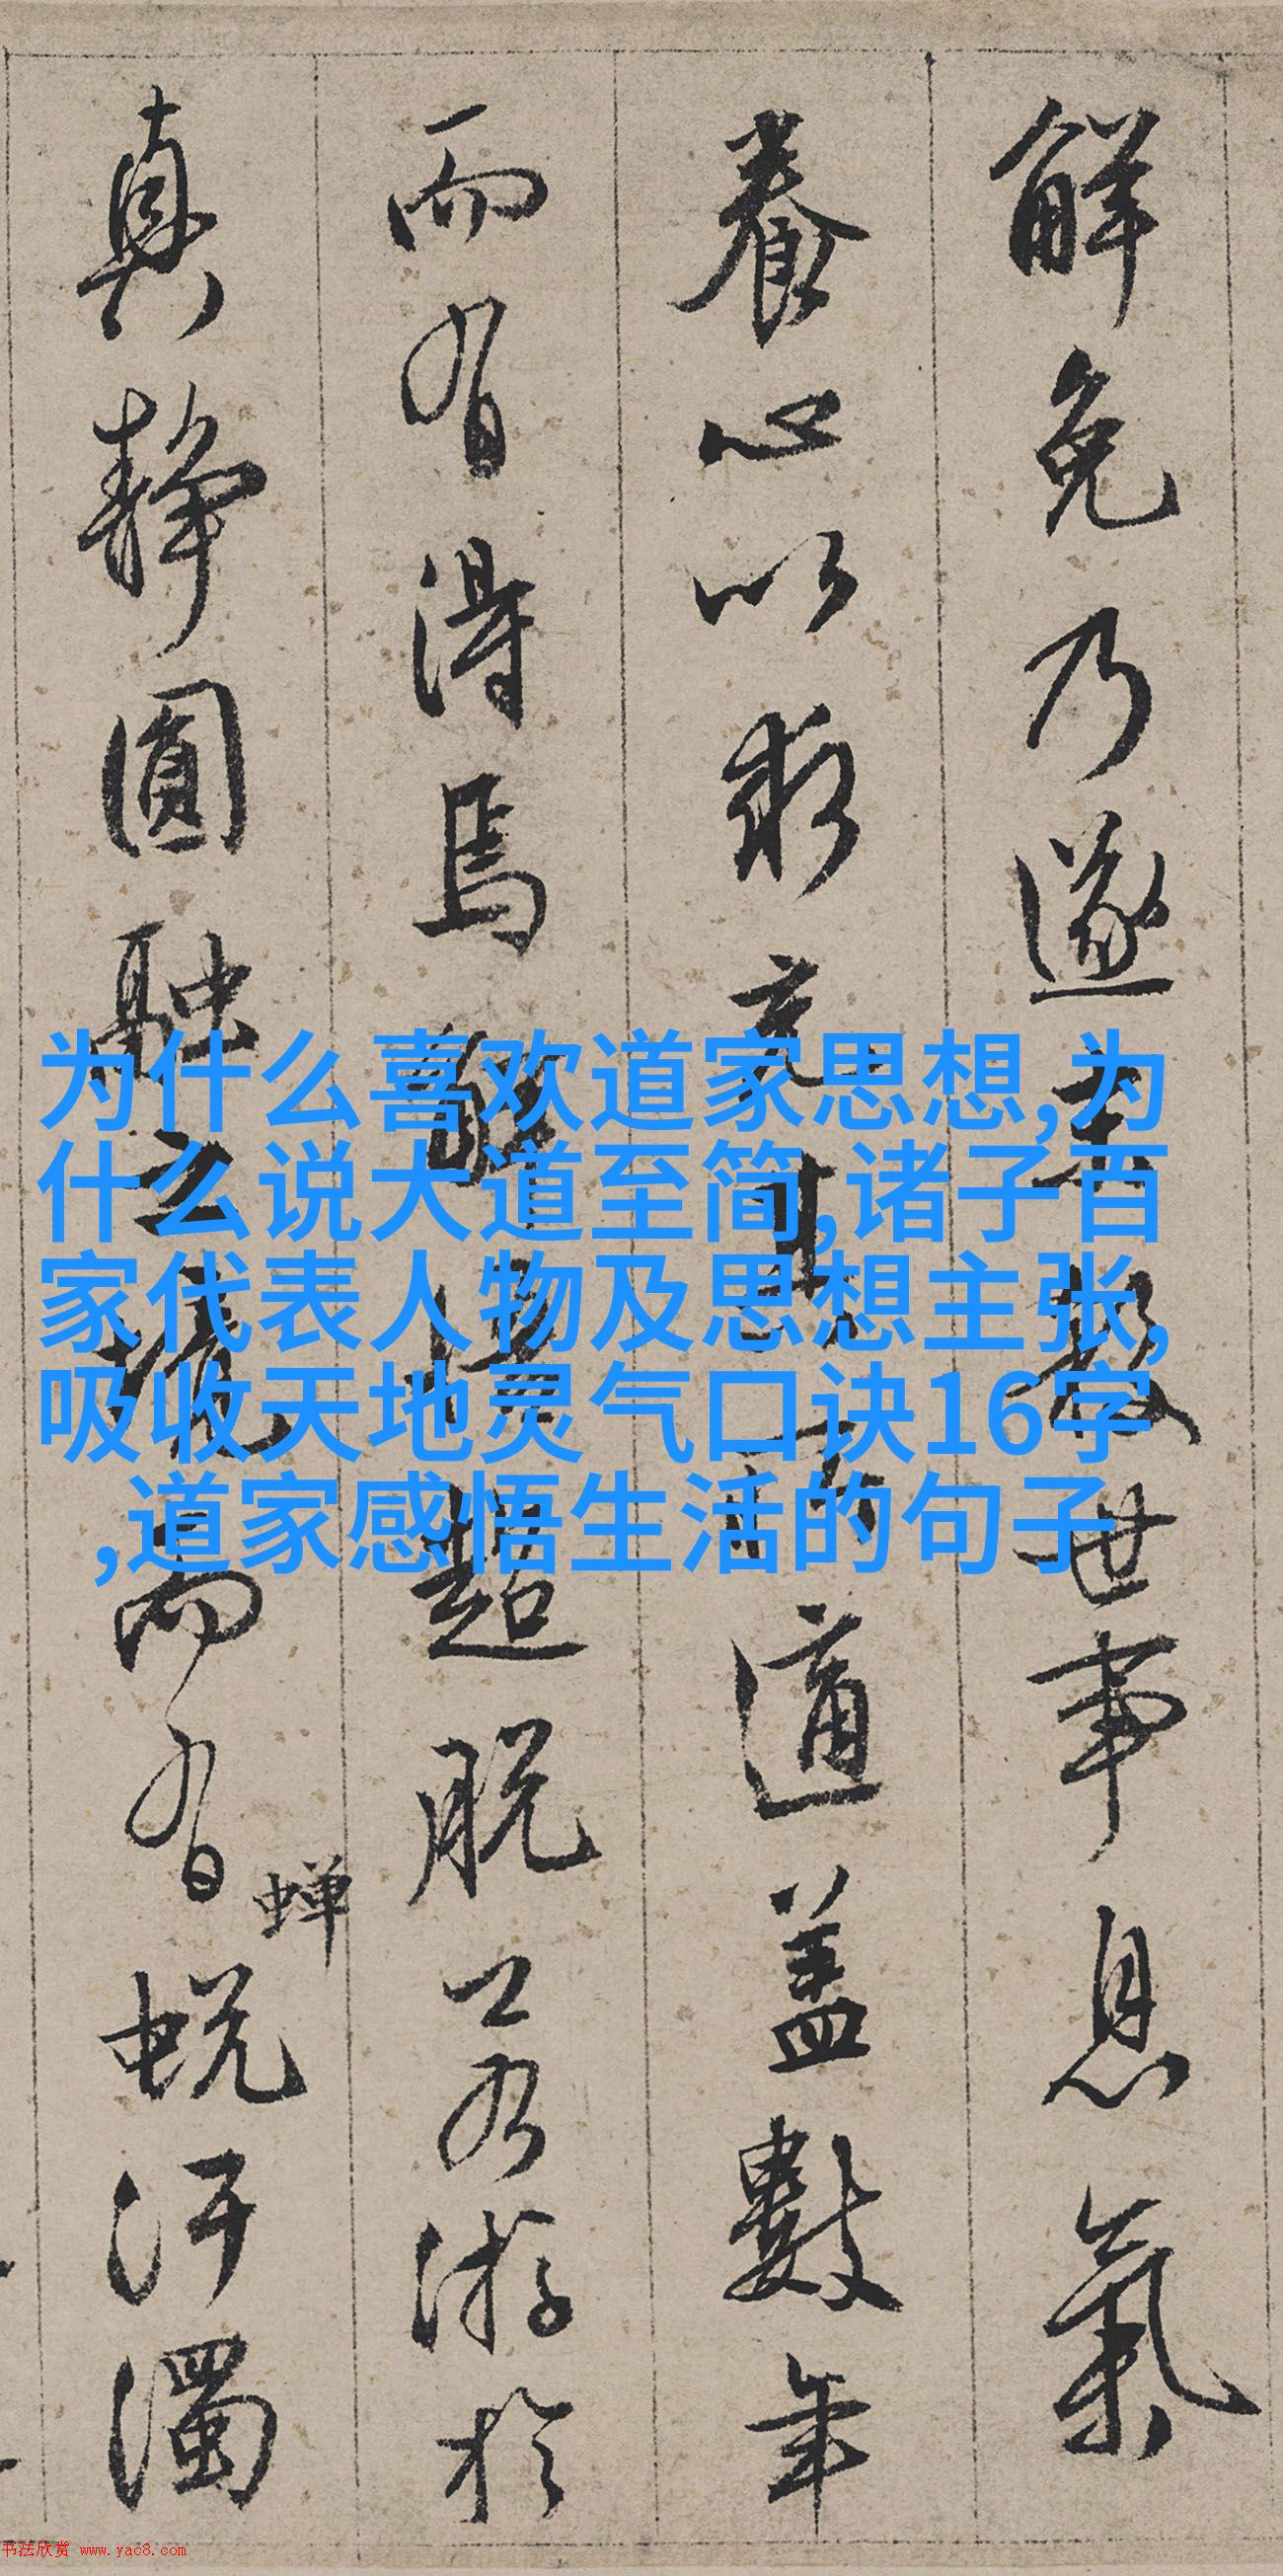 解免乃遂 世事息氣
養心以求 適蓋數年
而有得焉 超脫 游於
真靜圓融之境而有蟬蛻汙濁
为什么喜欢道家思想,为
什么说大道至简,诸子百
家代表人物及思想主张,
吸收天地灵气口诀16字
,道家感悟生活的句子
书法欣赏 www.yac8.com